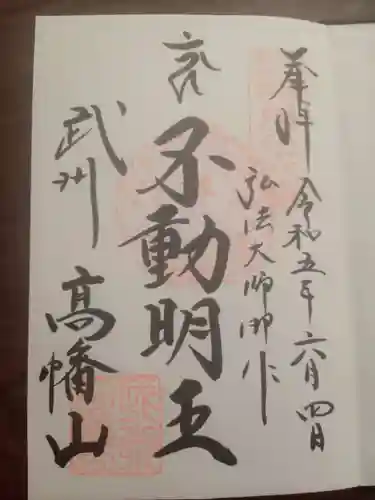 奉拝 令和五年六月四日
弘法大師御作
不動明王
武州 髙幡山